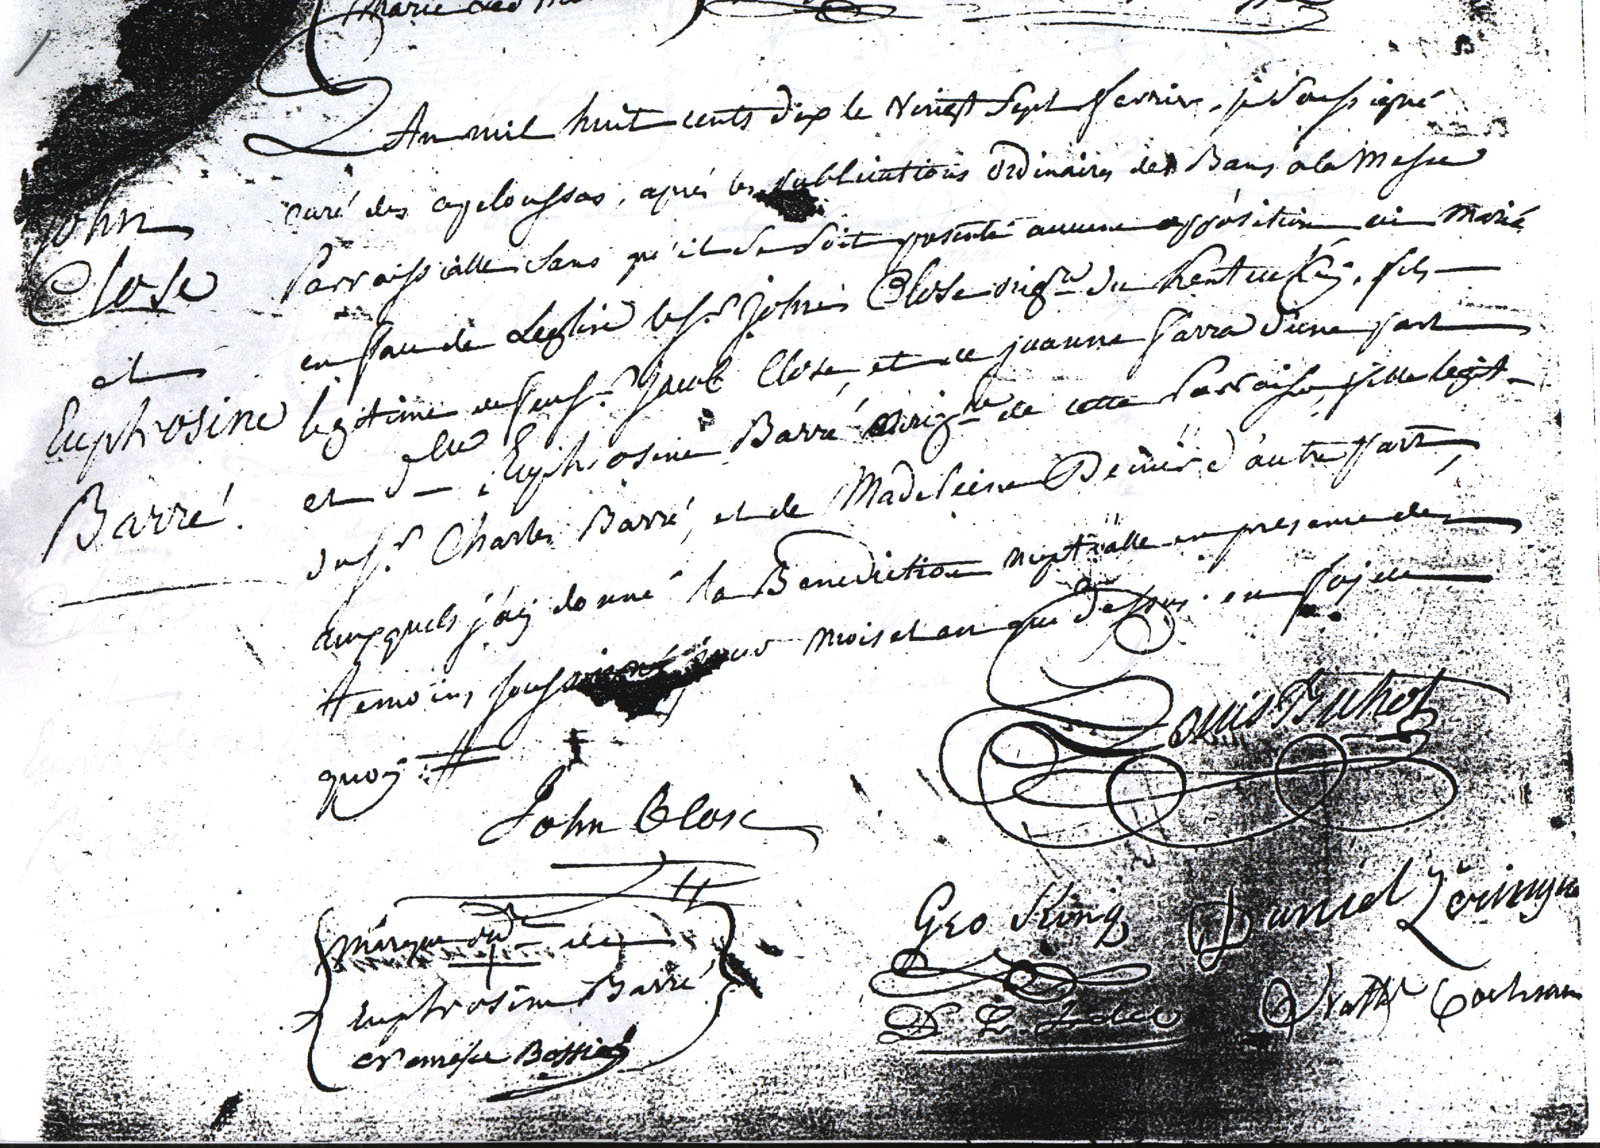 Marie
L'An mil huit cents dix le vingt sept fevrier, je soussigné
John
Close
et
Euphrosine
Barré.
curé des opeloussas, aprés les publications ordinaires des Bans a la Messe
Parroissialle Sans qu'il se soit presenté aucune oppósition ai marié
en face de Leglise le Sr. John Close orig.re du Kentuckey, fils
legitime de feu Sr. Jacob Close, et de juanna d'une part
et d.elle Euphrosine Barré orig.re de cette Parroisse, fille legit.
du Sr. Charles Barré, et de Madeleine Decuir d'autre part,
auxquels j'ay donné la Benediction nuptialle en presence des
temoins soussignés jour mois et an que dessus. en foy de
quoy
Louis Buhot
John Close
Geo King
Daniel
marque ord.re de
Euphrosine Barré
D L Todd
Nath.l Cochran